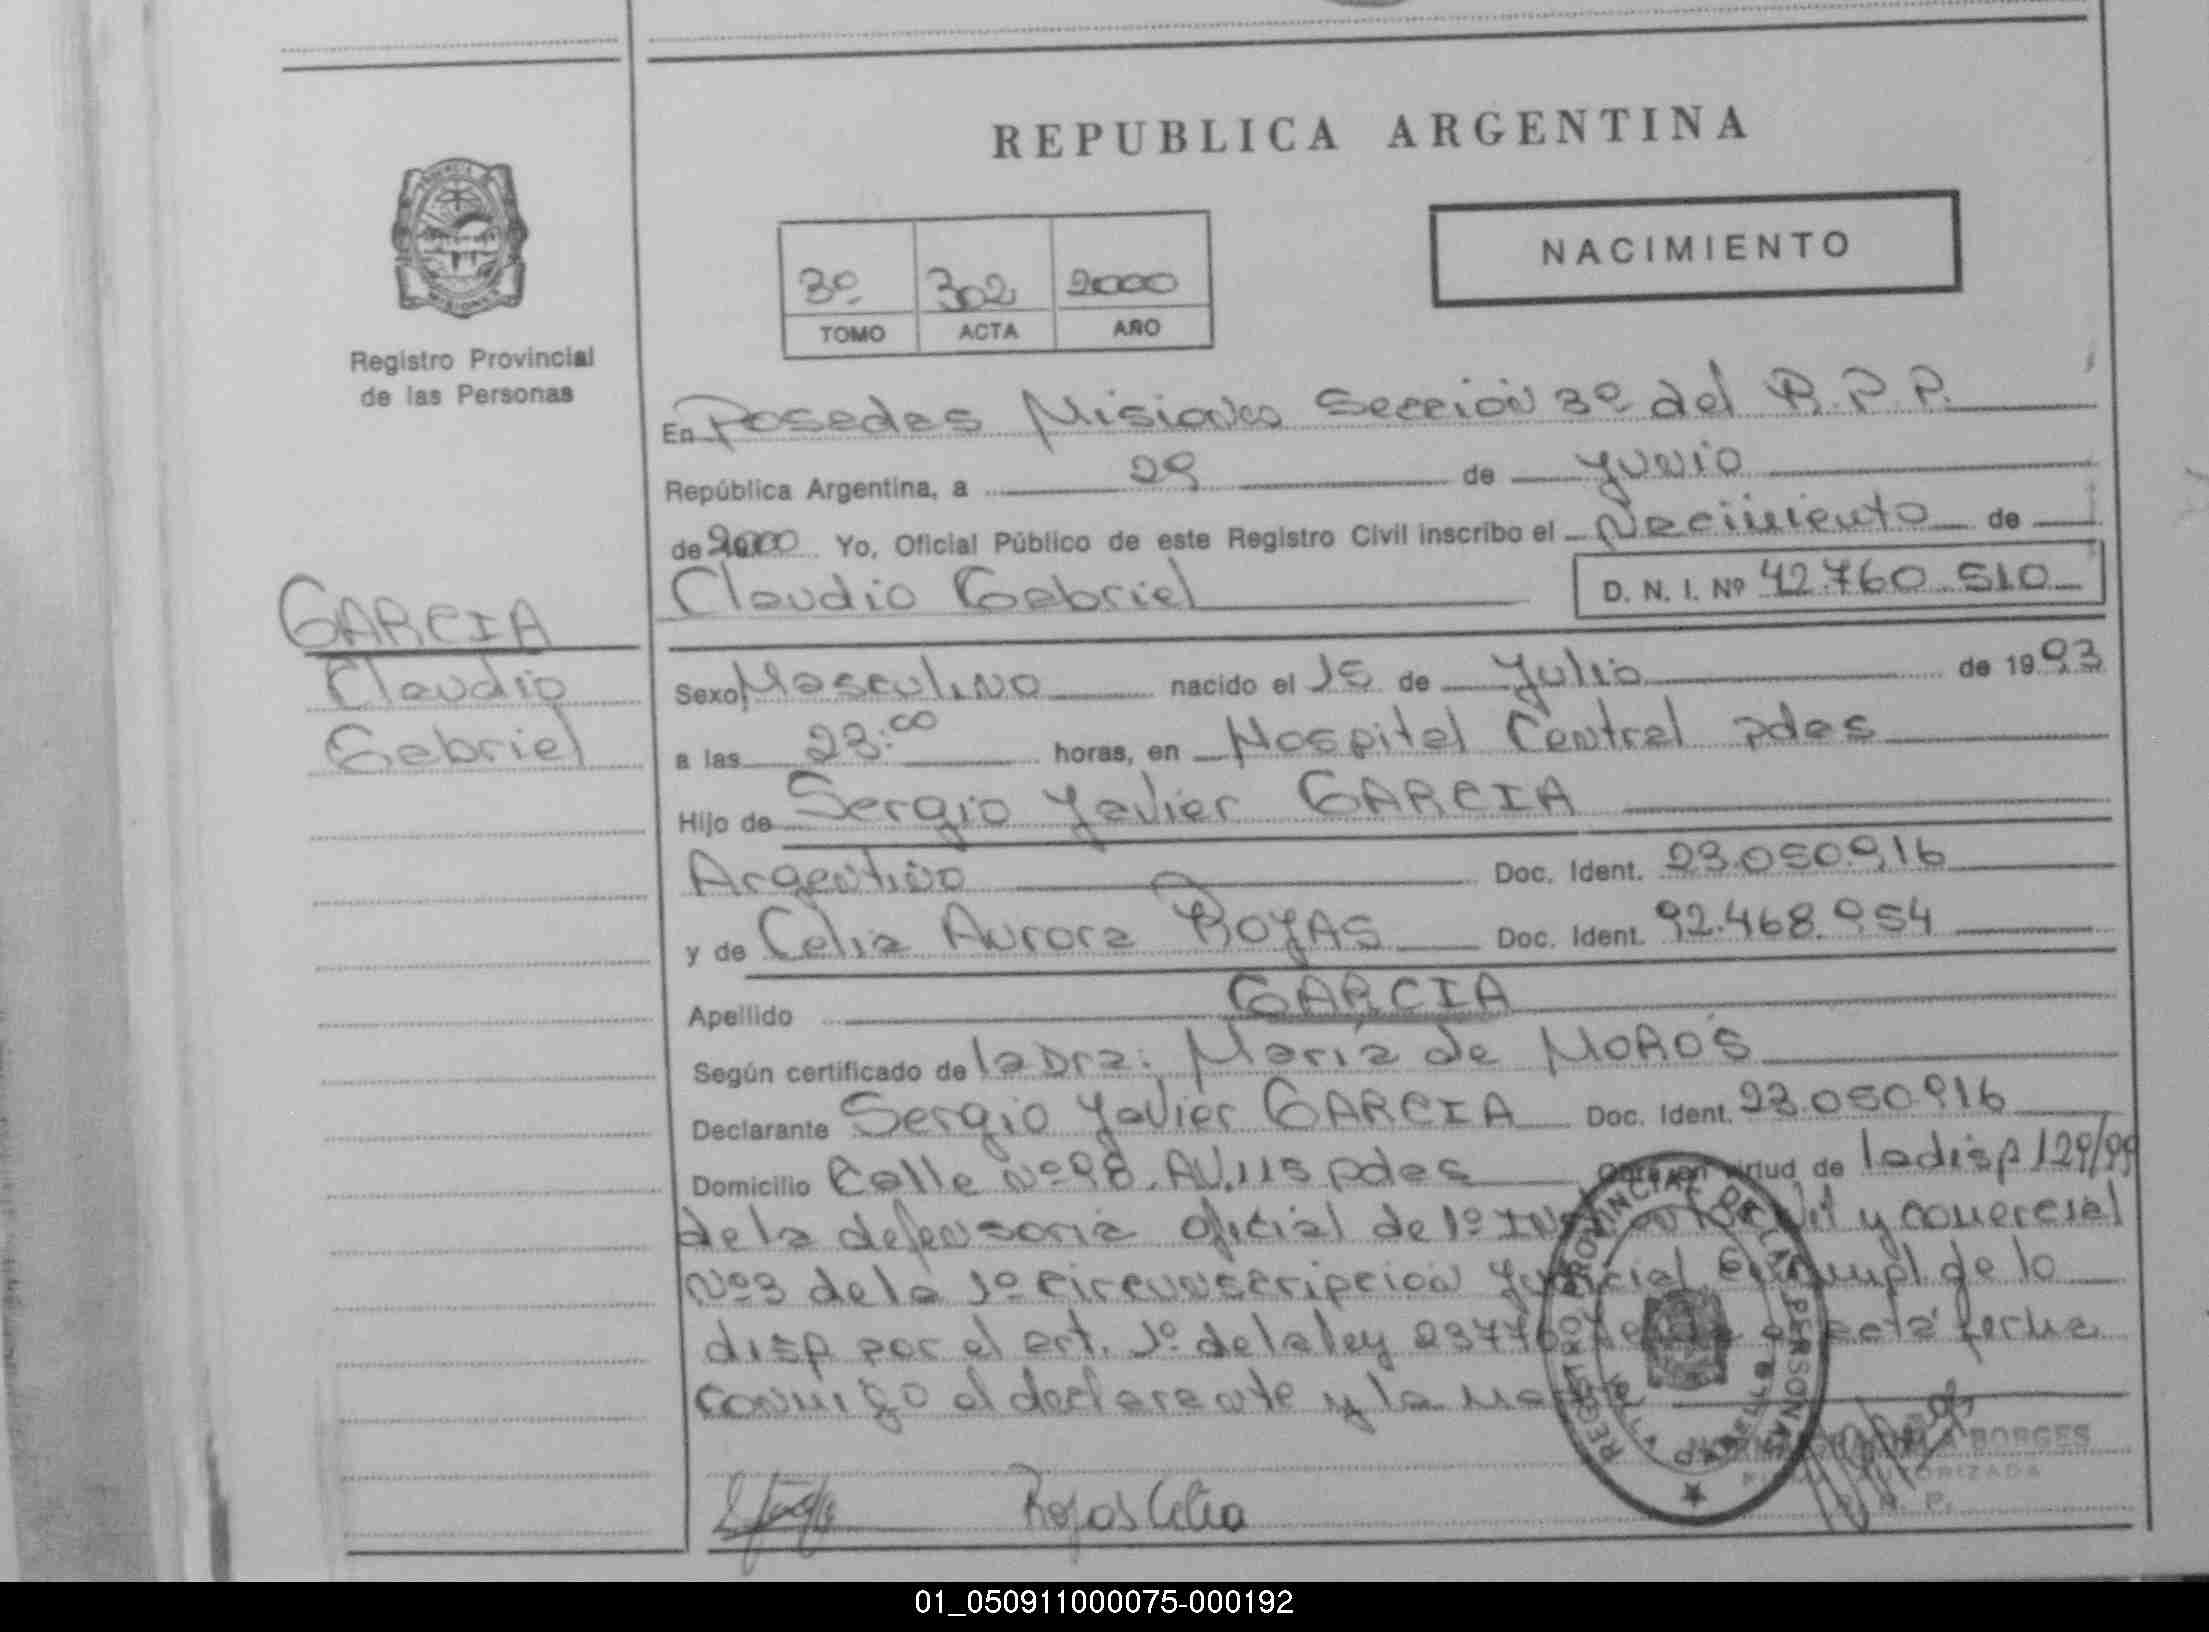 REPUBLICA ARGENTINA
NACIMIENTO
3º 302 2000
TOMO ACTA AÑO
Registro Provincial
de las Personas
En Posadas Misiones Sección 3º del R.P.P.
República Argentina, a 29 de Junio
de 2000 Yo, Oficial Público de este Registro Civil inscribo el Nacimiento de
Claudio Gabriel D. N. I. Nº 42.760.510
GARCIA
Claudio
Gabriel
Sexo Masculino nacido el 15 de Julio de 1993
a las 23:00 horas, en Hospital Central pdas
Hijo de Sergio Javier GARCIA
Argentino Doc. Ident. 23.050.916
y de Celia Aurora ROJAS Doc. Ident. 92.468.954
Apellido GARCIA
Según certificado de la Dra: María de MOROS
Declarante Sergio Javier GARCIA Doc. Ident. 23.050.916
Domicilio Calle Nº 98. AV. 115 pdas virtud de la disp 129/99
de la defensoria oficial de 1º y comercial
Nº3 de la 1º circunscripcion de lo
disp por el art. 1º de la ley 23776 fecha
conmigo el declarante y la
Rojas Celia
REGISTRO PROVINCIAL DE LAS PERSONAS
BORGES
AUTORIZADA
01_050911000075-000192